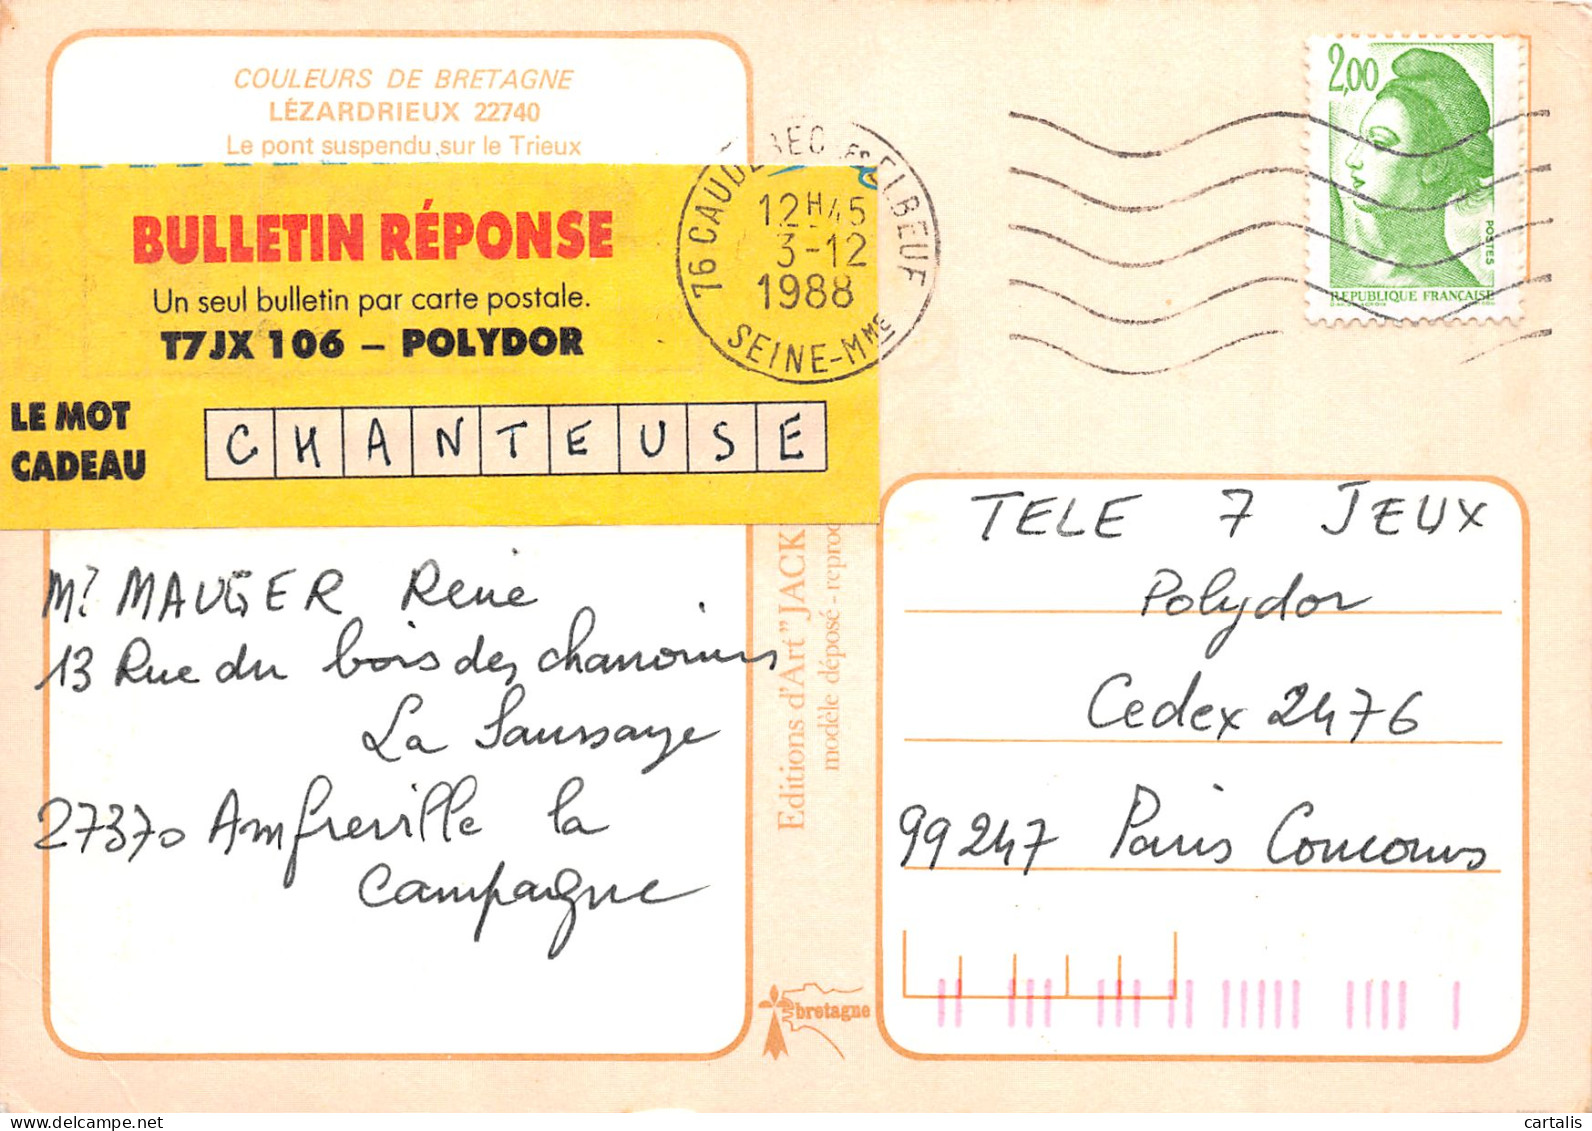 COULEURS DE BRETAGNE
LÉZARDRIEUX 22740
Le pont suspendu sur le Trieux
BULLETIN RÉPONSE
Un seul bulletin par carte postale.
T7JX 106 – POLYDOR
LE MOT
CADEAU
CHANTEUSE
76 CAUDEBEC LES ELBEUF
12H45
3-12
1988
SEINE-Mme
2,00
POSTES
REPUBLIQUE FRANÇAISE
Mr MAUGER René
13 Rue du bois des chanoines
La Saussaye
27370 Amfreville la
Campagne
Editions d'Art "JACK
modèle déposé - reproc
bretagne
TELE 7 JEUX
Polydor
Cedex 2476
99247 Paris Concours
www.delcampe.net
cartalis